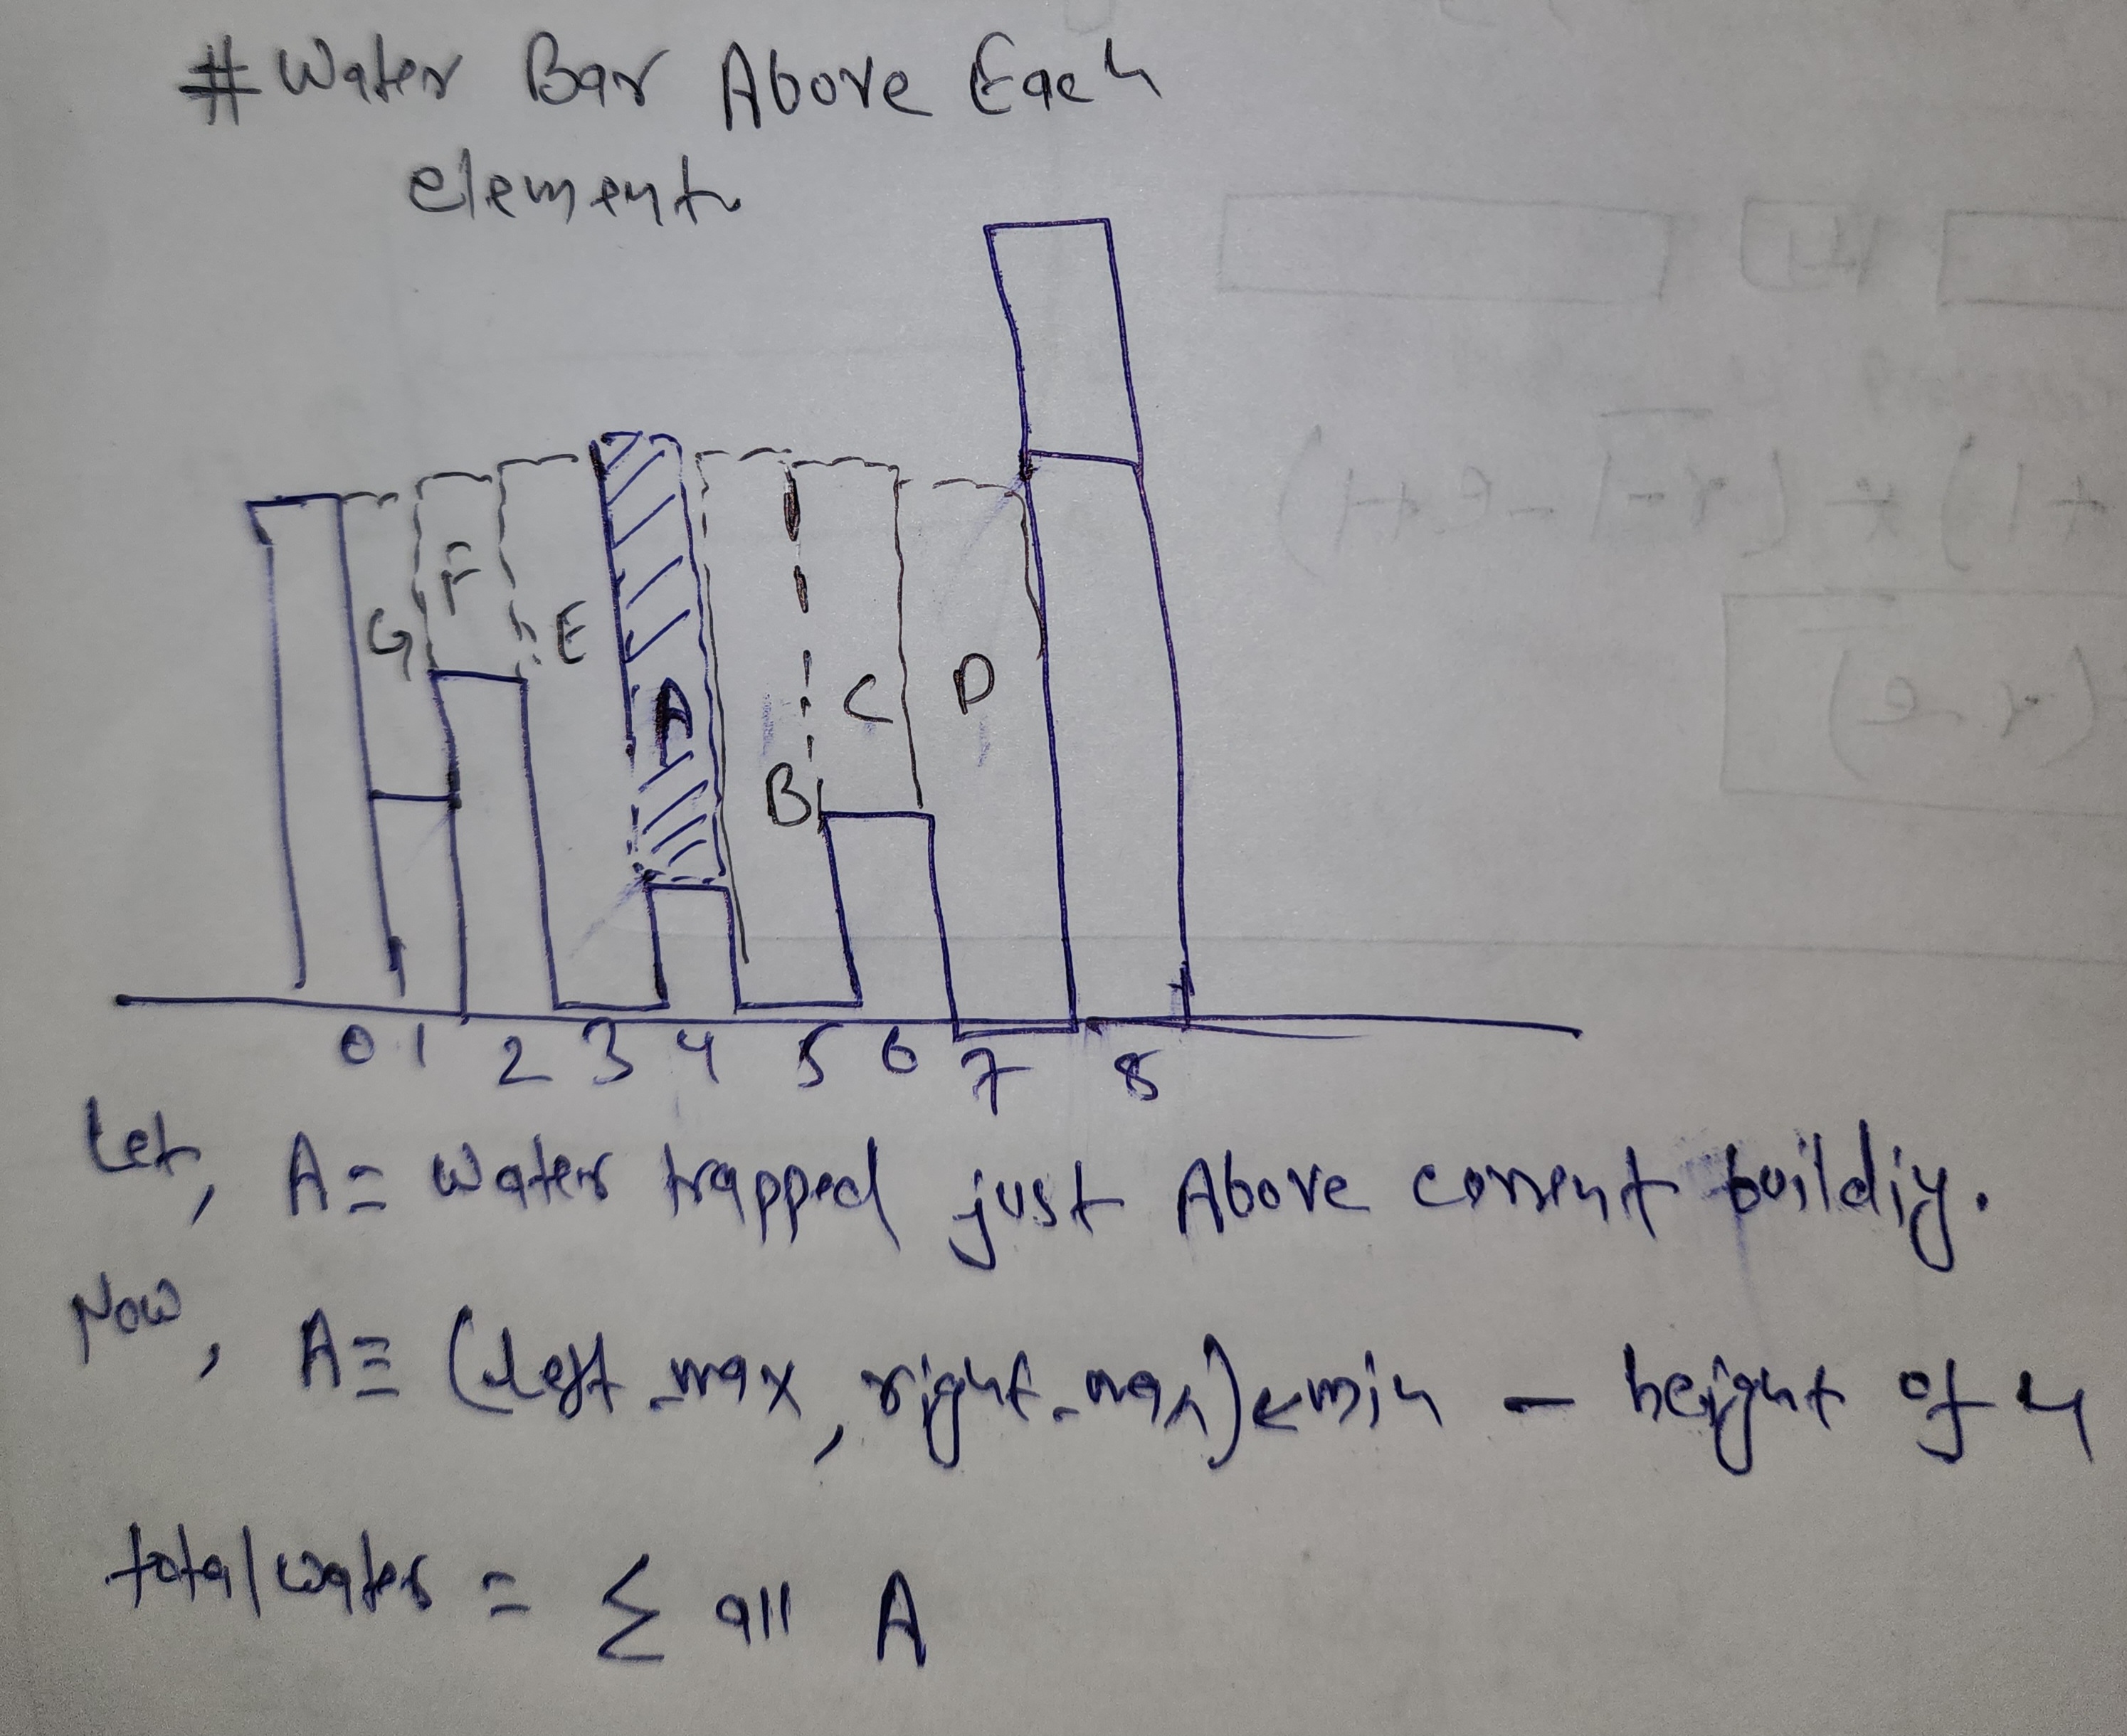 # Water Bar Above Each
element
F
G
E
A
C
D
B
0 1 2 3 4 5 6 7 8
Let, A = water trapped just Above current buildiy.
Now, A = (left_max, right_max) ← min - height of 4
total water = Σ all A